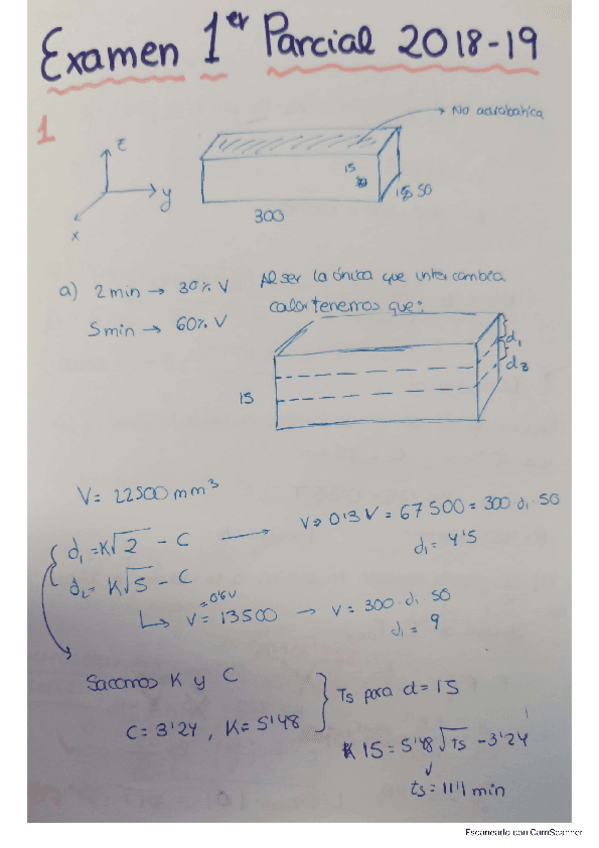 Examen 1er Parcial 2018-19
1
No adiabática
z
y
x
15
50
300
a) 2 min → 30% V
5 min → 60% V
Al ser la única que intercambia
calor tenemos que:
d1
d2
15
V = 22500 mm³
d1 = K√2 - C → V => 0'3 V = 67500 = 300 · d1 · 50
d1 = 4'5
d2 = K√5 - C
= 0'6V
↳ V = 13500 → V = 300 · d1 · 50
d1 = 9
Sacamos K y C
C = 3'24, K = 5'48
Ts para d = 15
15 = 5'48√Ts - 3'24
ts = 11'1 min
Escaneado con CamScanner